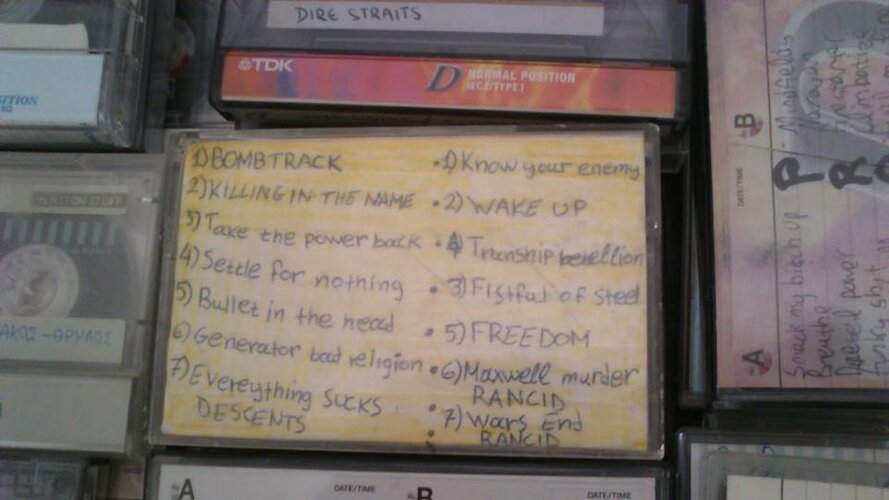 DIRE STRAITS
TDK
D NORMAL POSITION
IECI/TYPE I
SITION
1) BOMBTRACK
2) KILLING IN THE NAME
3) Take the power back
4) Settle for nothing
5) Bullet in the head
6) Generator bad religion
7) Evereything SUCKS
DESCENTS
1) Know your enemy
2) WAKE UP
4 Trownship bebellion
3) Fistful of steel
5) FREEDOM
6) Maxwell murder
RANCID
7) Waars End
RANCID
ΑΚΟΣ-ΘΡΥΛΟΣ
B
DATE/TIME
Mindfields
Narayan
P R O
A
DATE/TIME
Smack my bitch up
Breathe
Funky shit
A
DATE/TIME
B
DATE/TIME